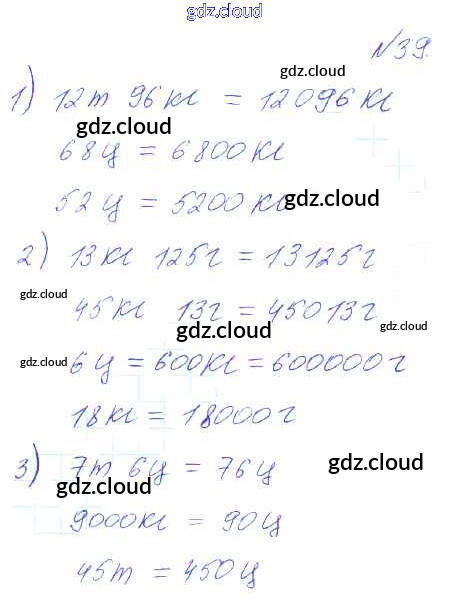 gdz.cloud
№39.
gdz.cloud
1) 12т 96кг = 12096кг
gdz.cloud
68ц = 6800кг
52ц = 5200кг gdz.cloud
2) 13кг 125г = 13125г
gdz.cloud gdz.cloud
45кг 13г = 45013г
gdz.cloud
gdz.cloud 6ц = 600кг = 600000г
18кг = 18000г
3) 7т 6ц = 76ц gdz.cloud
gdz.cloud
9000кг = 90ц
45т = 450ц